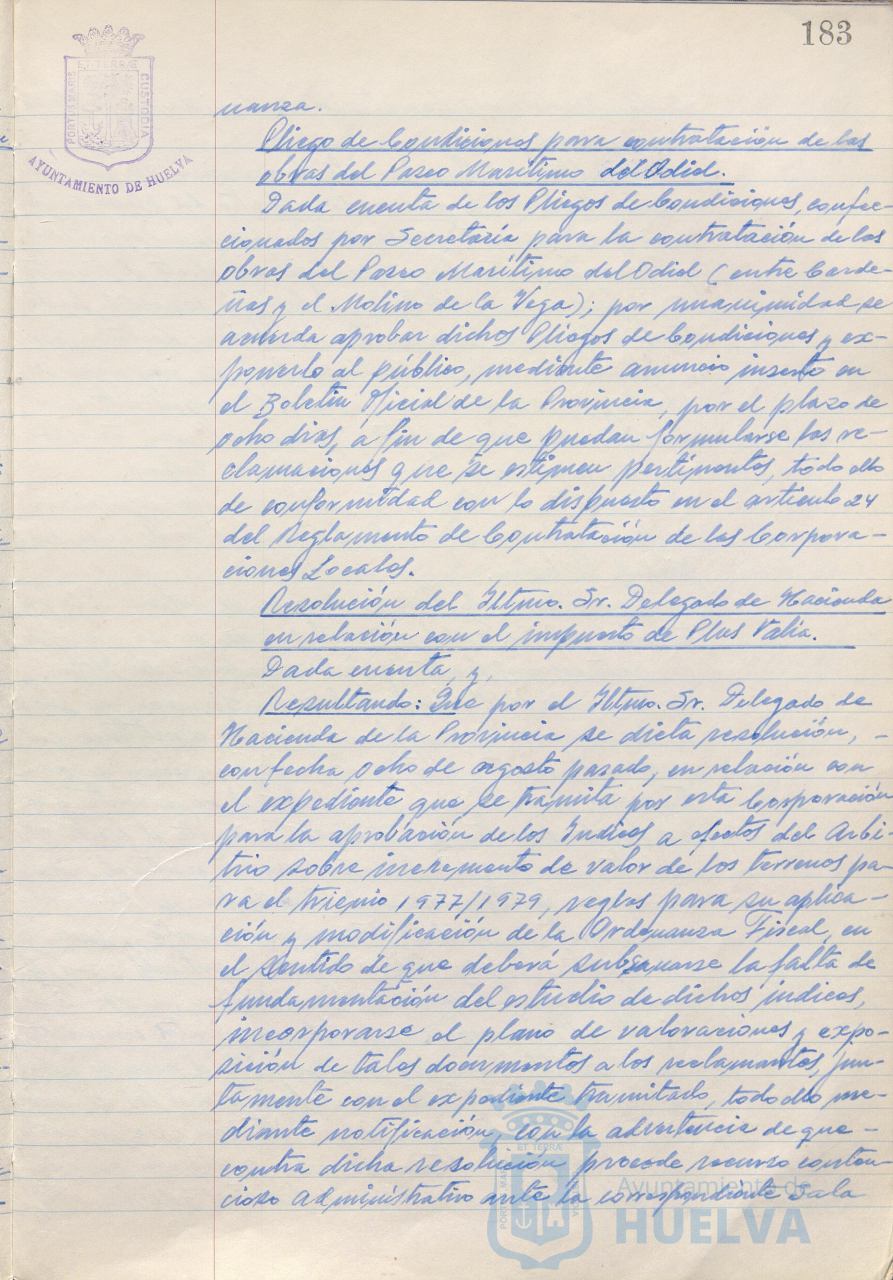 183
PORTUS MARIS ET TERRÆ CUSTODIA
AYUNTAMIENTO DE HUELVA
nanza.
Pliego de Condiciones para contratación de las
obras del Paseo Marítimo del Odiel.
Dada cuenta de los Pliegos de Condiciones, confec-
cionados por Secretaría para la contratación de las
obras del Paseo Marítimo del Odiel (entre Carde-
ñas y el Molino de la Vega); por unanimidad se
acuerda aprobar dichos Pliegos de Condiciones y ex-
ponerlo al público, mediante anuncio inserto en
el Boletín Oficial de la Provincia, por el plazo de
ocho días, a fin de que puedan formularse las re-
clamaciones que se estimen pertinentes, todo ello
de conformidad con lo dispuesto en el artículo 24
del Reglamento de Contratación de las Corpora-
ciones Locales.
Resolución del Iltmo. Sr. Delegado de Hacienda
en relación con el impuesto de Plus Valía.
Dada cuenta, y,
Resultando: Que por el Iltmo. Sr. Delegado de
Hacienda de la Provincia se dicta resolución, -
con fecha ocho de agosto pasado, en relación con
el expediente que se tramita por esta Corporación
para la aprobación de los Indices a efectos del Arbi-
trio sobre incremento de valor de los terrenos pa-
ra el trienio 1977/1979, reglas para su aplica-
ción y modificación de la Ordenanza Fiscal, en
el sentido de que deberá subsanarse la falta de
fundamentación del estudio de dichos indices,
incorporarse el plano de valoraciones y expo-
sición de tales documentos a los reclamantes, jun-
tamente con el expediente tramitado, todo ello me-
diante notificación, con la advertencia de que -
contra dicha resolución procede recurso conten-
cioso administrativo ante la correspondiente Sala
Ayuntamiento de
HUELVA